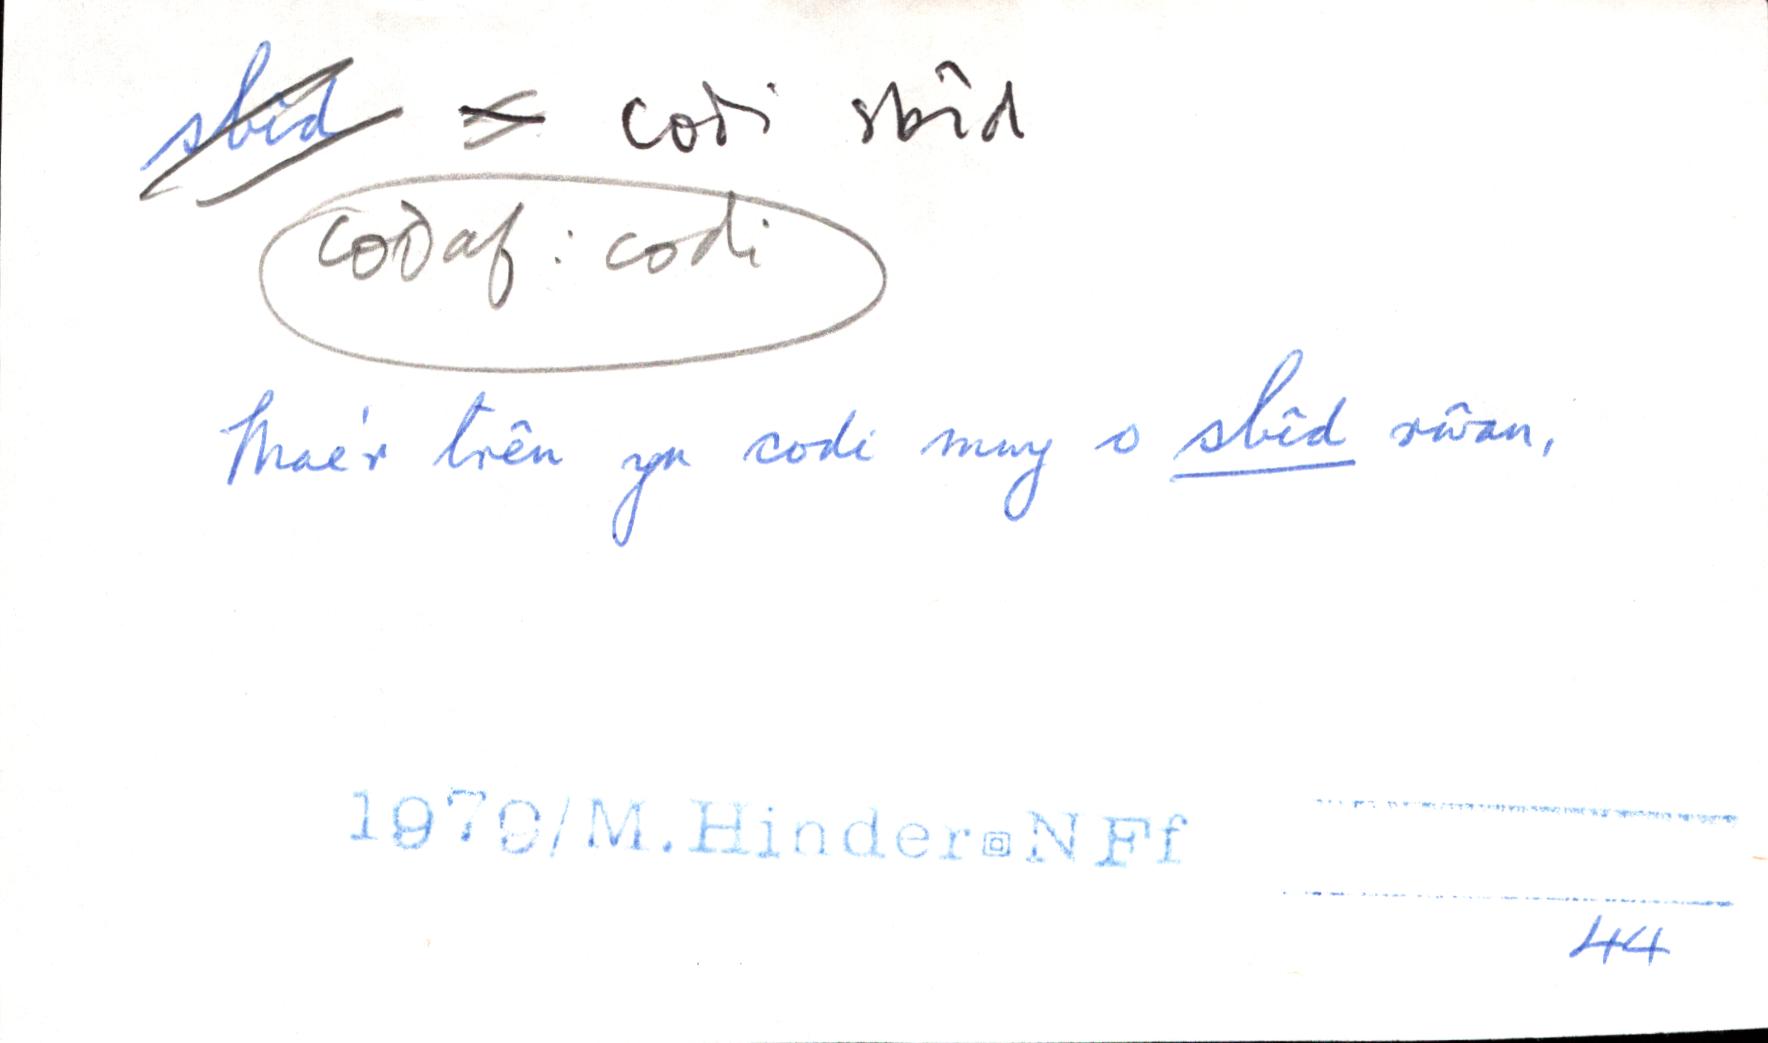 sbîd = codi sbîd
codaf : codi
Mae'r trên yn codi mwy o sbîd rŵan.
1979/M.Hinder NFf
44